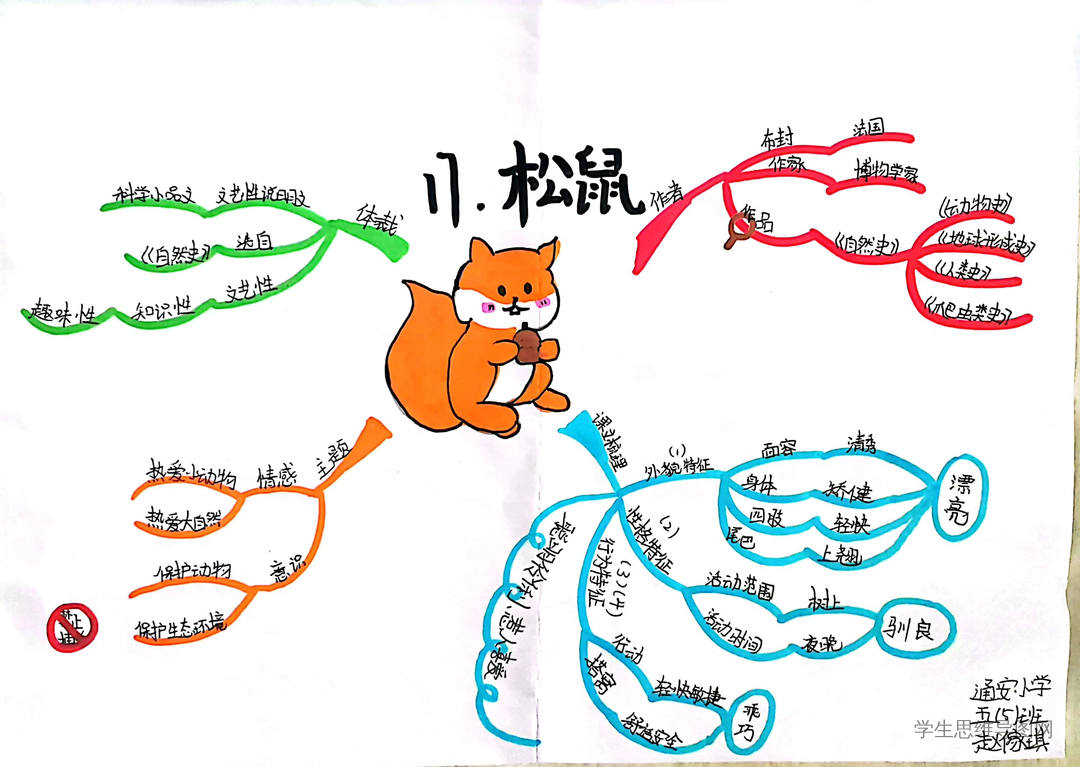 17.松鼠
体裁
文艺性说明文
科学小品文
选自
《自然史》
文艺性
知识性
趣味性
作者
布封
法国
作家
博物学家
作品
《自然史》
《动物史》
《地球形成史》
《人类史》
《爬虫类史》
主题
情感
热爱小动物
热爱大自然
意识
保护动物
保护生态环境
禁止
课文梳理
(1)
外貌特征
面容
清秀
身体
矫健
四肢
轻快
尾巴
上翘
漂亮
(2)
性格特征
活动范围
树上
活动时间
夜晚
驯良
(3)(4)
行为特征
行动
轻快敏捷
搭窝
舒适安全
乖巧
讨人喜爱
通安小学
五(5)班
学生思维导图网